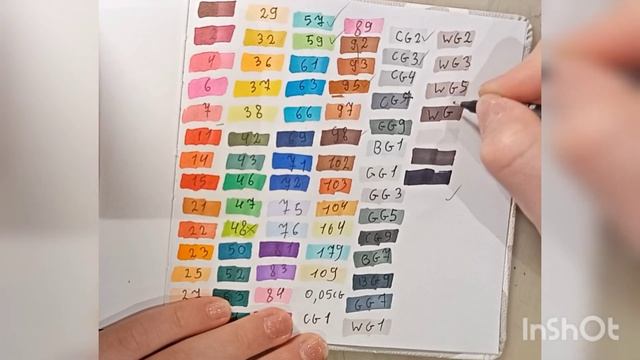 29
57
89
2
32
59
92
CG2
WG2
4
36
61
93
CG3
WG3
6
37
63
95
CG4
WG5
7
38
66
97
WG
11
42
69
98
GG9
14
43
71
102
BG1
15
46
72
103
GG1
21
47
75
104
GG3
22
48
76
164
GG5
23
50
81
179
CG9
25
52
83
109
BG7
27
53
84
0,05CG
BG9
CG1
GG7
WG1
InShOt